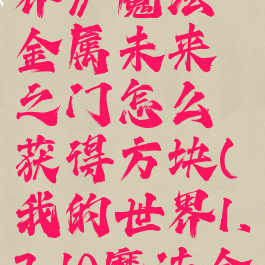 界》魔法
金属未来
之门怎么
获得方块(
我的世界1.
7.10魔法金